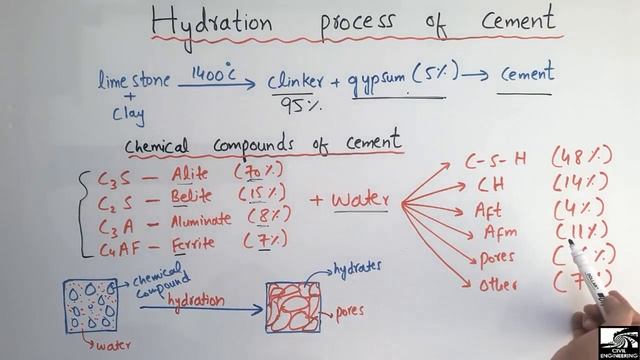 Hydration process of cement
limestone + clay 1400°C → clinker 95% + gypsum (5%) → cement
chemical compounds of cement
C₃S – Alite (70%)
C₂S – Belite (15%)
C₃A – Aluminate (8%)
C₄AF – Ferrite (7%)
+ water
C-S-H (48%)
CH (14%)
Aft (4%)
Afm (11%)
pores
other
chemical compound
water
hydration
hydrates
pores
CIVIL ENGINEERING